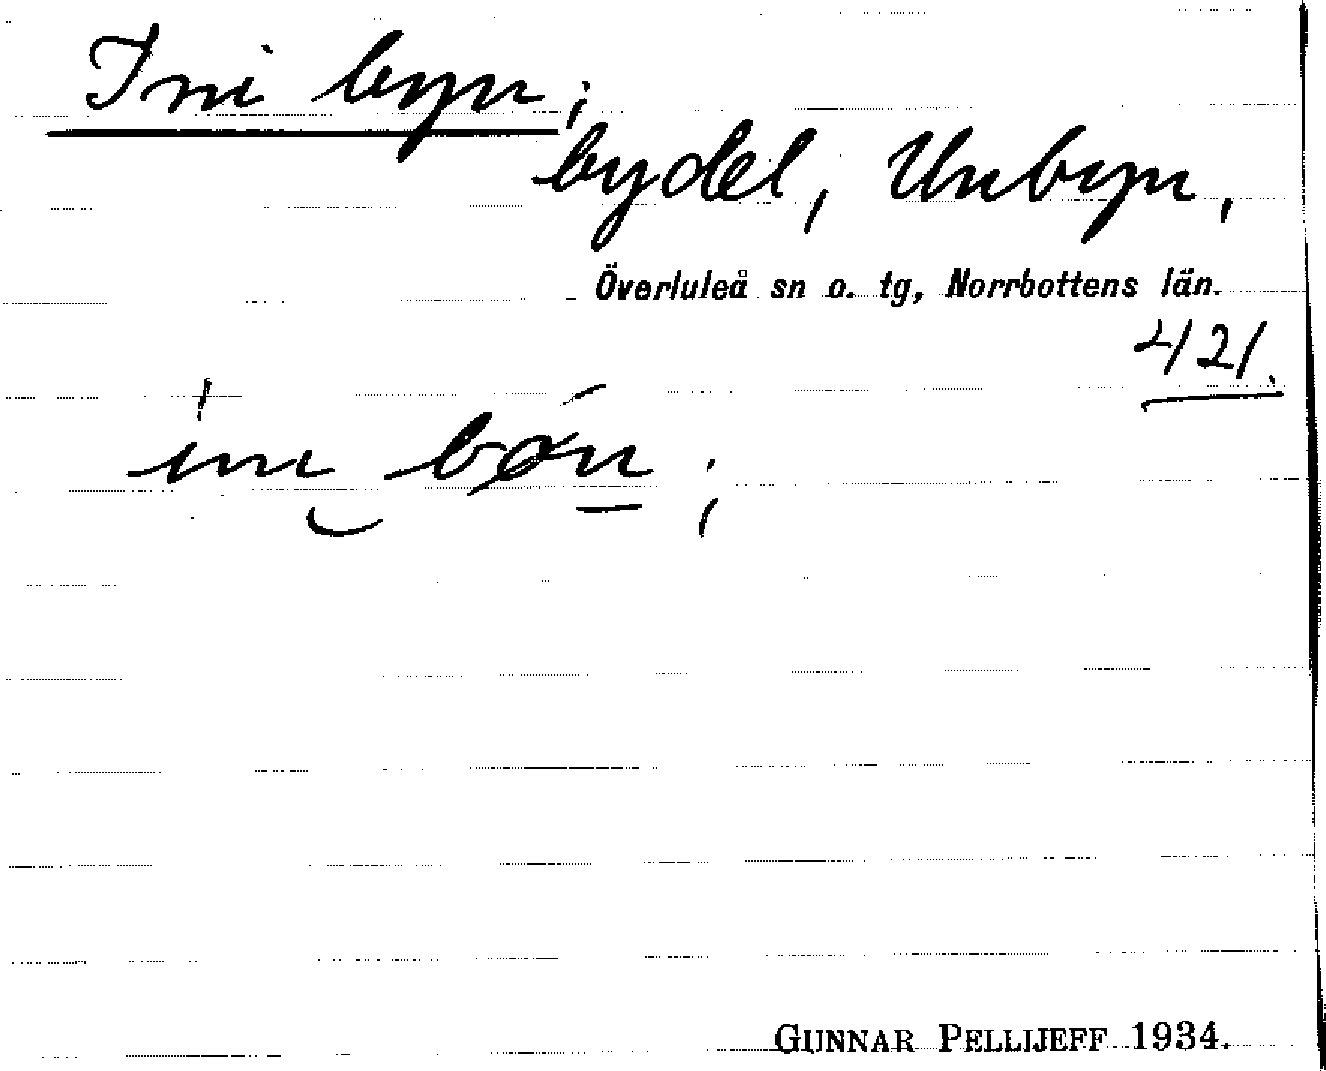 Ini byn;
bydel, Unbyn,
Överluleå sn o. tg, Norrbottens län.
421.
ini bøn;
GUNNAR PELLIJEFF 1934.